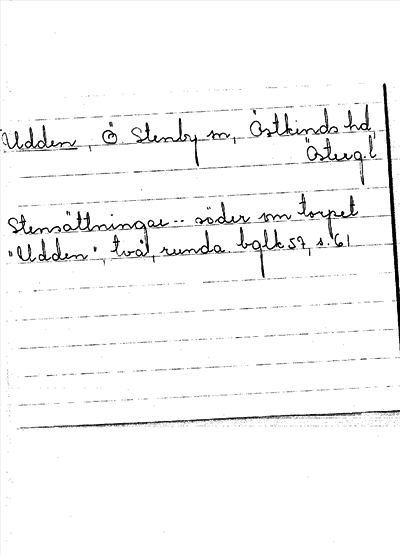 Udden, Ö Stenby sn, Östkinds hd,
Östergl
Stensättningar .. söder om torpet
"Udden", två, runda. bglk 57, s. 61